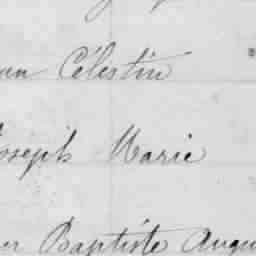 Célestin
Joseph Marie
Baptiste Augu